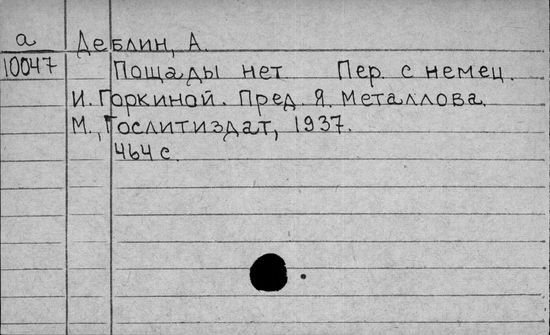 а Деблин, А.
10047 Пощады нет Пер. с немец.
И. Горкиной. Пред. Я. Металлова.
М., Гослитиздат, 1937.
464 с.